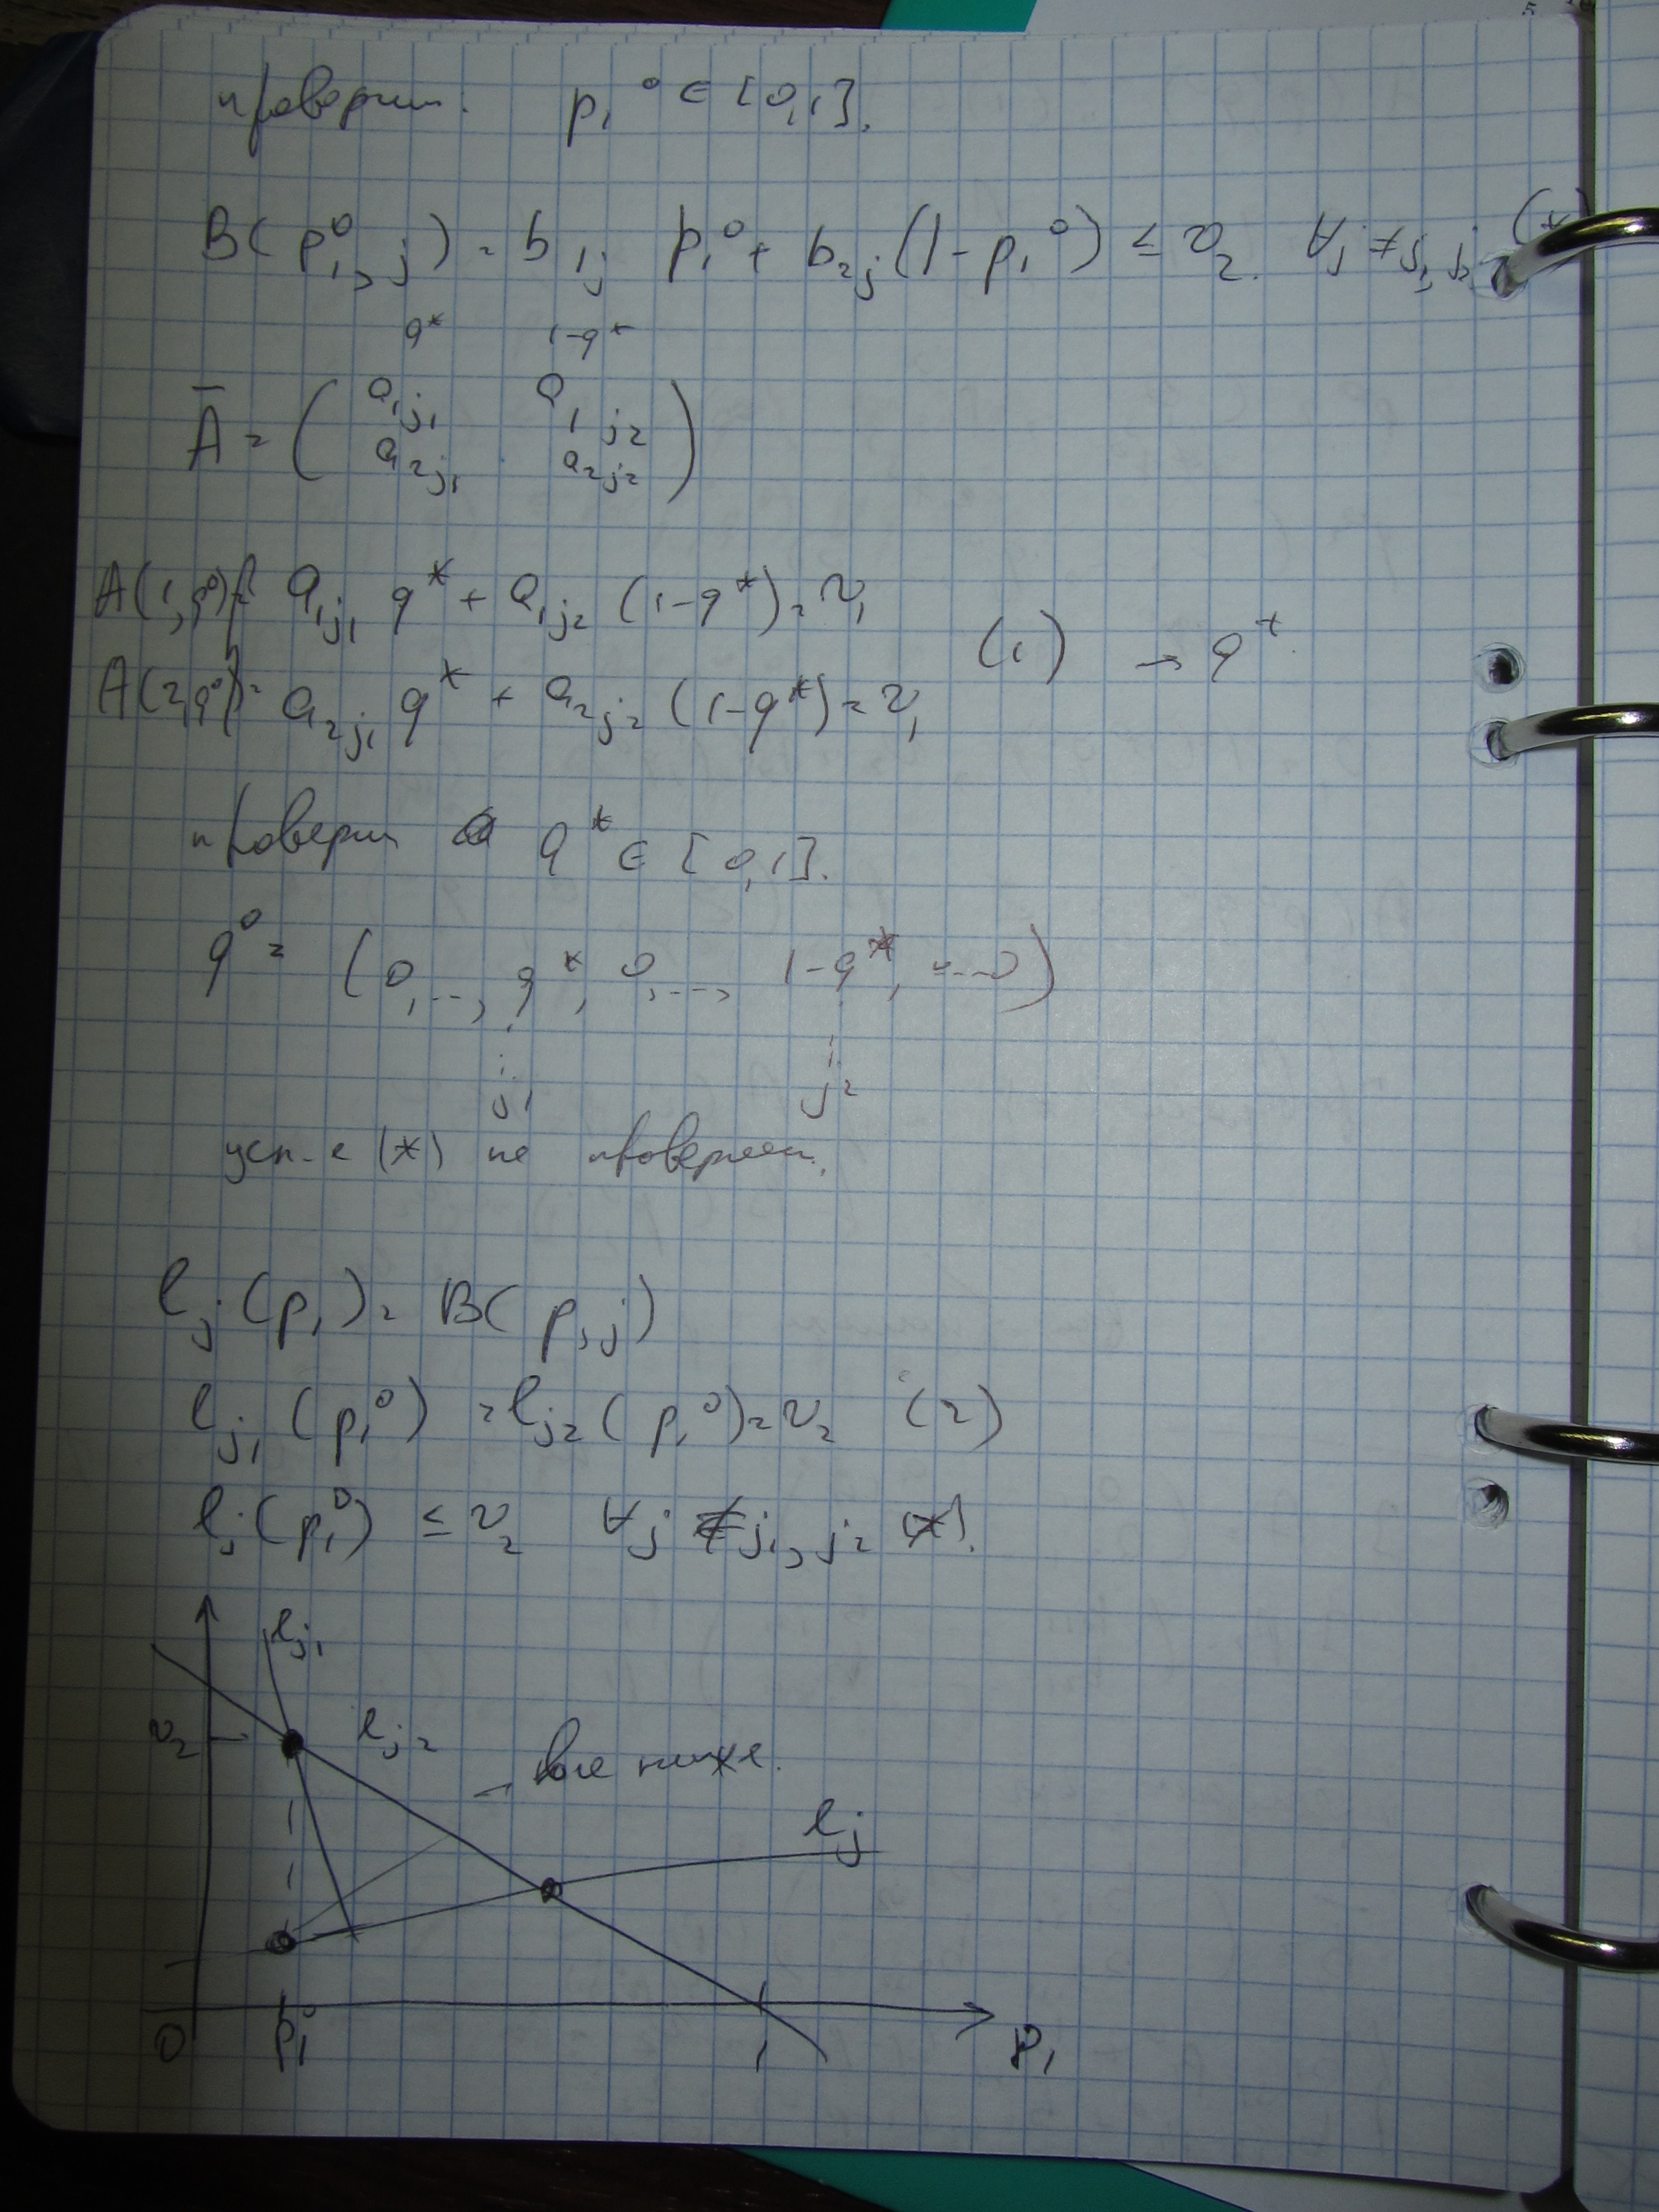 проверим: p₁⁰ ∈ [0,1].
B(p₁⁰, j) = b₁ⱼ p₁⁰ + b₂ⱼ(1-p₁⁰) ≤ v₂. ∀j ≠ j₁, j₂ (*)
q* 1-q*
Ā = ( a_{1j₁} a_{1j₂}
a_{2j₁} a_{2j₂} )
A(1,q⁰) = a_{1j₁} q* + a_{1j₂} (1-q*) = v₁
(1) → q*.
A(2,q⁰) = a_{2j₁} q* + a_{2j₂} (1-q*) = v₁
проверим q* ∈ [0,1].
q⁰ = (0,..., q*, 0,..., 1-q*, ...0)
j₁ j₂
усл-е (*) не проверяем.
lⱼ(p₁) = B(p, j)
l_{j₁}(p₁⁰) = l_{j₂}(p₁⁰) = v₂ (2)
lⱼ(p₁⁰) ≤ v₂ ∀j ≠ j₁, j₂ (*).
l_{j₁}
v₂ l_{j₂}
- все ниже.
lⱼ
0 p₁⁰ 1 p₁